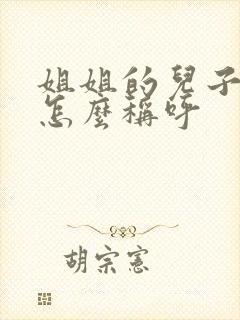 姐姐的兒子
怎麼稱呼
胡宗憲